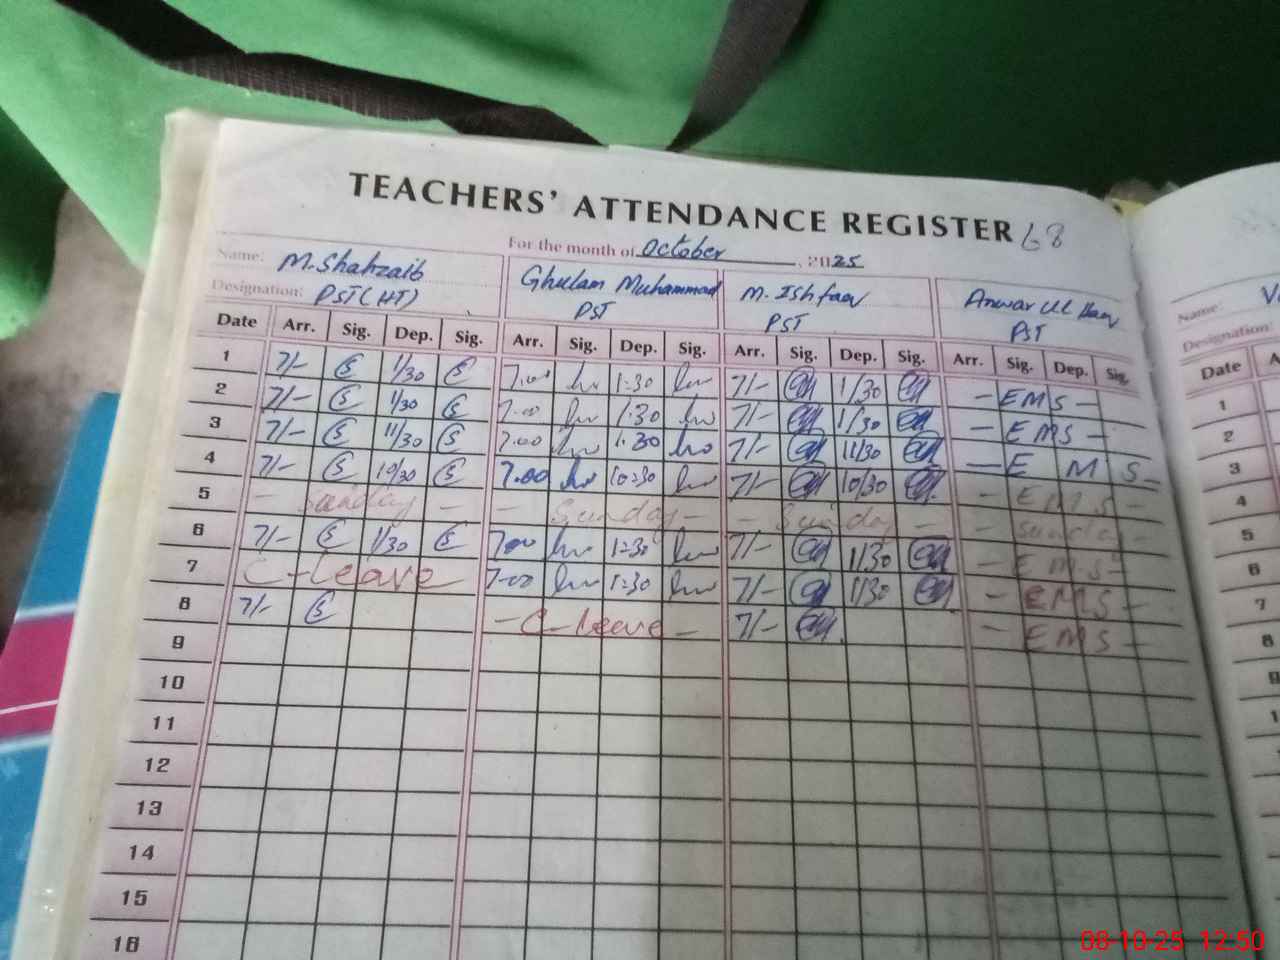 TEACHERS' ATTENDANCE REGISTER 68
For the month of October, 2025
Name: M.Shahzaib Ghulam Muhammad M. Ishfaq Anwar ul Haq
Designation: PST(HT) PST PST PST
Date Arr. Sig. Dep. Sig. Arr. Sig. Dep. Sig. Arr. Sig. Dep. Sig. Arr. Sig. Dep. Sig.
1 7/- 1/30 7.00 1:30 7/- 1/30 - E M S -
2 7/- 1/30 7.00 1.30 7/- 1/30 - E M S -
3 7/- 11/30 7.00 1.30 7/- 11/30 - E M S -
4 7/- 10/30 7.00 10:30 7/- 10/30 - E M S -
5 - Sunday - - Sunday - - Sunday - - Sunday -
6 7/- 1/30 7.00 1:30 7/- 1/30 - E M S -
7 C-leave 7.00 1:30 7/- 1/30 - E M S -
8 7/- - C-leave - 7/- - E M S -
9
10
11
12
13
14
15
16
Name:
Designation:
Date
1
2
3
4
5
6
7
8
8
9
08-10-25 12:50